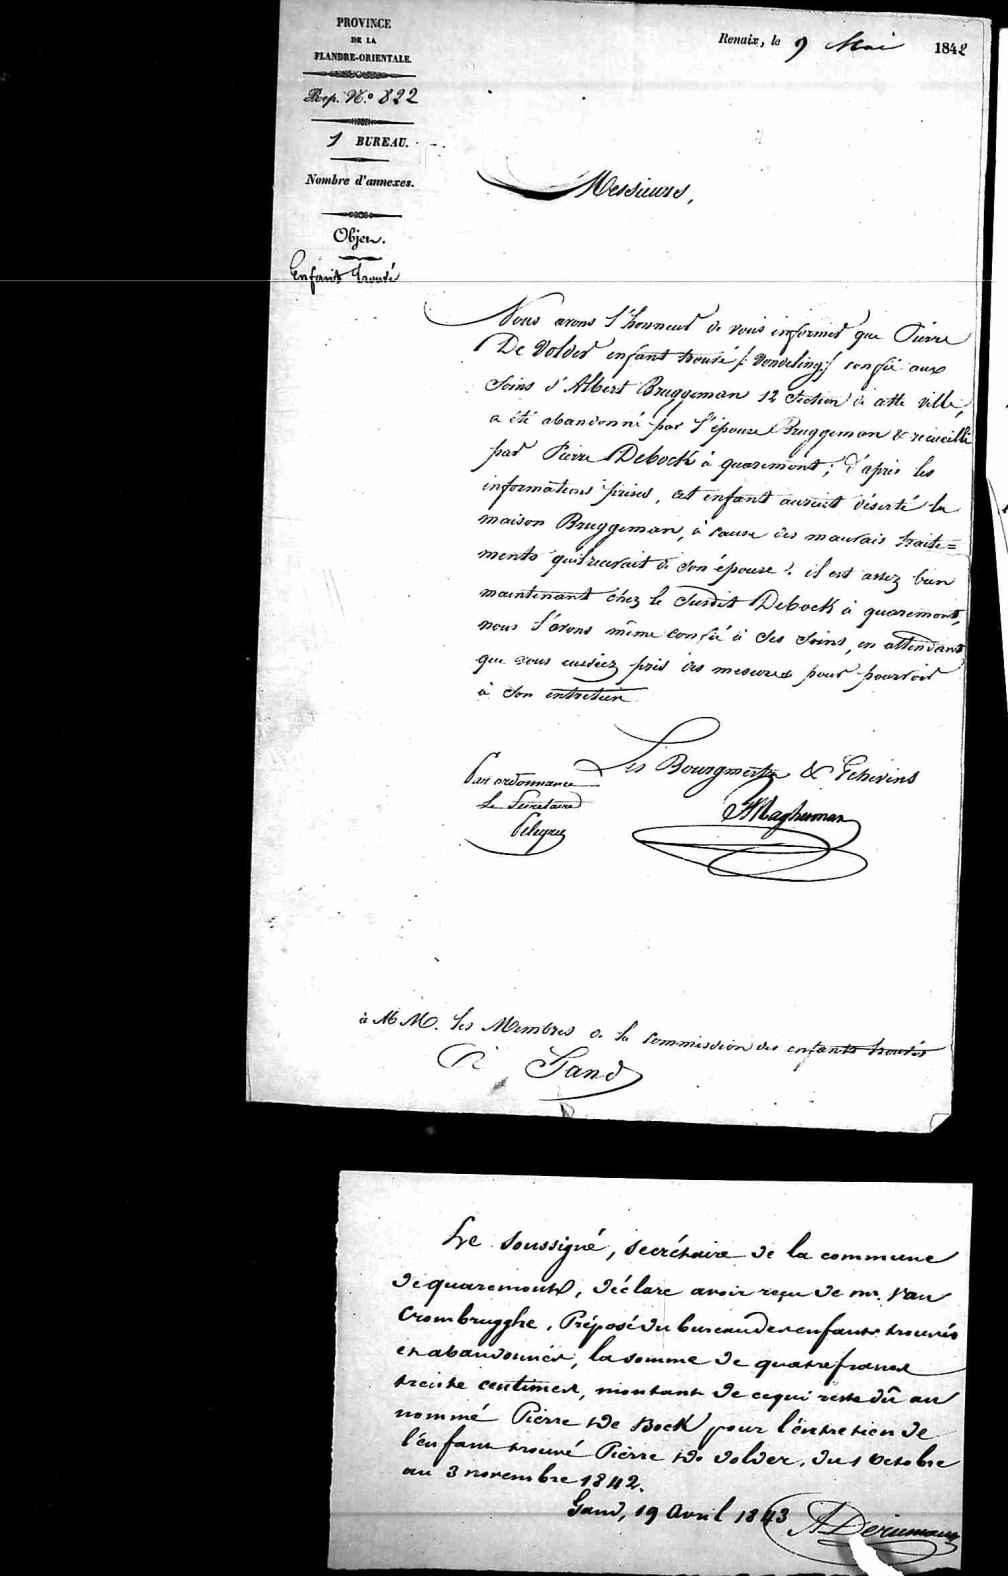 PROVINCE
DE LA
FLANDRE-ORIENTALE.
Rep. N.º 822
1 BUREAU.
Nombre d'annexes.
Objet.
Enfant trouvé
Renaix, le 9 Mai 1842
Messieurs,
Nous avons l'honneur de vous informer que Pierre
De Volder enfant trouvé /: Vondeling :/ confié aux
soins d'Albert Bruggeman 12 Section de cette ville,
a été abandonné par l'épouse Bruggeman & recueilli
par Pierre Debock à quaremont; d'après les
informations prises, cet enfant aurait déserté la
maison Bruggeman, à cause des mauvais traite=
ments qu'il recevait de son épouse: il est assez bien
maintenant chez le susdit Debock à quaremont,
nous l'avons même confié à ses soins, en attendant
que vous eussiez pris des mesures pour pourvoir
à son entretien
Les Bourgmestre & Echevins
Par ordonnance
Le Secretaire
à MM. les Membres de la Commission des enfants trouvés
à Gand
Le Soussigné, secrétaire de la commune
de quaremont, déclare avoir reçu de mr. Van
Crombrugghe, Préposé du bureau des enfants trouvés
et abandonnés, la somme de quatre francs
treize centimes, montant de ce qui reste dû au
nommé Pierre De Bock pour l'entretien de
l'enfant trouvé Pierre De Volder, du 1 Octobre
au 3 novembre 1842.
Gand, 19 Avril 1843